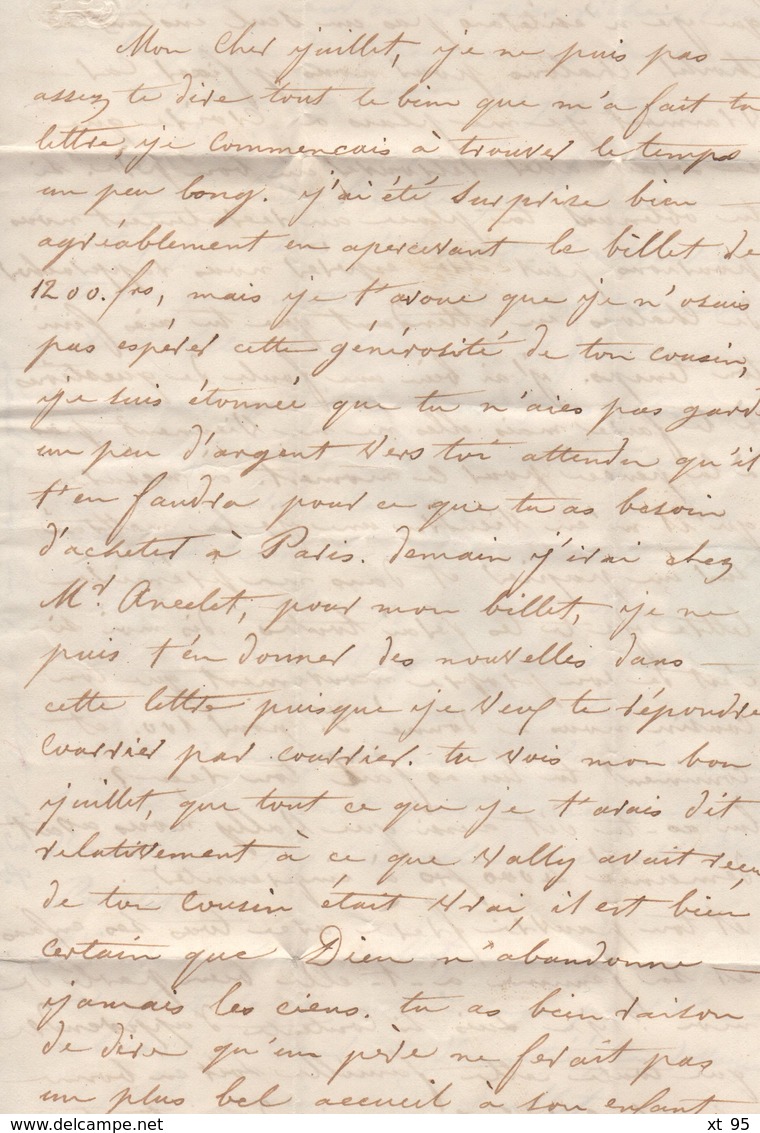 Mon cher juillet, je ne puis pas
assez te dire tout le bien que m'a fait ta
lettre, je commencais à trouver le temps
un peu long. j'ai été surprise bien
agréablement en apercevant le billet de
1200. frs, mais je t'avoue que je n'osais
pas espérer cette générosité de ton cousin,
je suis étonnée que tu n'aies pas gard
un peu d'argent vers toi attendu qu'il
t'en faudra pour ce que tu as besoin
d'acheter à Paris. demain j'irai chez
Mr. Ancelet, pour mon billet, je ne
puis t'en donner des nouvelles dans
cette lettre puisque je veux te répondre
courrier par courrier. tu vois mon bon
juillet, que tout ce que je t'avais dit
relativement à ce que Vally avait reçu
de ton cousin était vrai, il est bien
certain que Dieu n'abandonne
jamais les ciens. tu as bien raison
de dire qu'un père ne ferait pas
un plus bel accueil à son enfant
xt 95